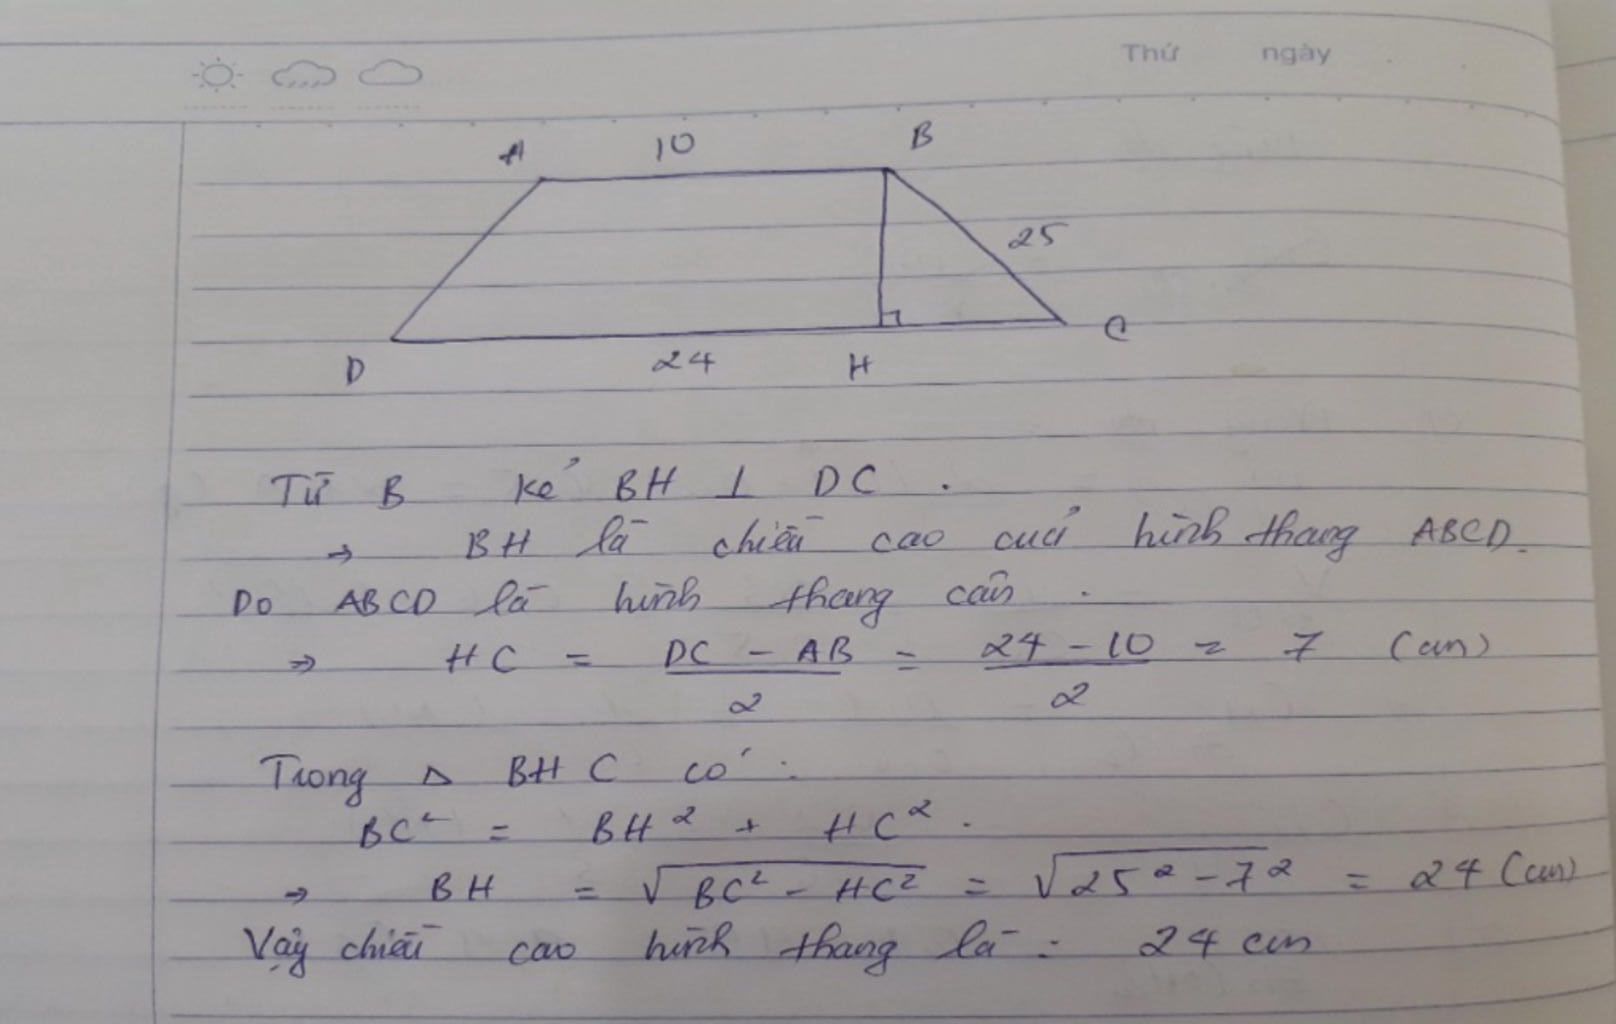 Thứ ngày
A 10 B
25
D 24 H C
Từ B kẻ BH ⊥ DC .
→ BH là chiều cao của hình thang ABCD.
Do ABCD là hình thang cân .
⇒ HC = (DC - AB)/2 = (24 - 10)/2 = 7 (cm)
Trong Δ BHC có :
BC² = BH² + HC² .
⇒ BH = √(BC² - HC²) = √(25² - 7²) = 24 (cm)
Vậy chiều cao hình thang là : 24 cm